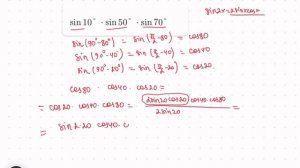 sin2x=2sinxcosx
sin 10° · sin 50° · sin 70°
sin(90°-80°) = sin(π/2-80) = cos80
sin(90°-40°) = sin(π/2-40) = cos40
sin(90°-20°) = sin(π/2-20) = cos20.
cos80 · cos40 · cos20 =
∵ cos20 · cos40 · cos80 = (2sin20cos20)cos40·cos80 / 2sin20 =
= sin2·20 cos40. c